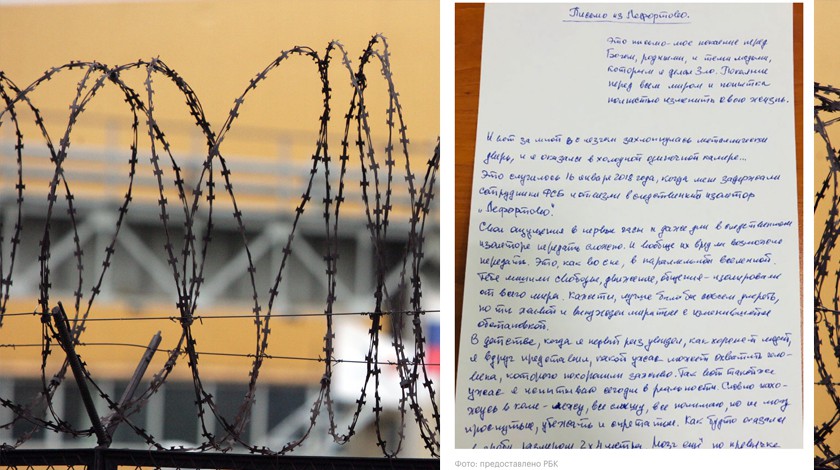 Письмо из Лефортово.
Это письмо-мое покаяние перед
Богом, родными, и теми людьми,
которым я делал зло. Покаяние
перед всем миром и попытка
полностью изменить свою жизнь.
И вот за мной с лязгом захлопнулась металлическая
дверь, и я оказался в холодной одиночной камере...
Это случилось 16 января 2018 года, когда меня задержали
сотрудники ФСБ и отвезли в следственный изолятор
"Лефортово".
Свои ощущения в первые часы и даже дни в следственном
изоляторе передать сложно. И вообще их вряд ли возможно
передать. Это, как во сне, в параллельной вселенной.
Тебя лишили свободы, движения, общения - изолировали
от всего мира. Кажется, лучше было бы совсем умереть,
но ты живой и вынужден мириться с изменившейся
обстановкой.
В детстве, когда я первый раз увидел, как хоронят людей,
я вдруг представил, какой ужас может охватить чело-
века, которого похоронили заживо. Так вот такой же
ужас я испытываю сегодня в реальности. Словно нахо-
жусь в коме - лежу, все слышу, все понимаю, но не могу
проснуться, убежать и спрятаться. Как будто оказался
в гробу размером 2х4 метра. Мозг ещё по привычке
Фото: предоставлено РБК